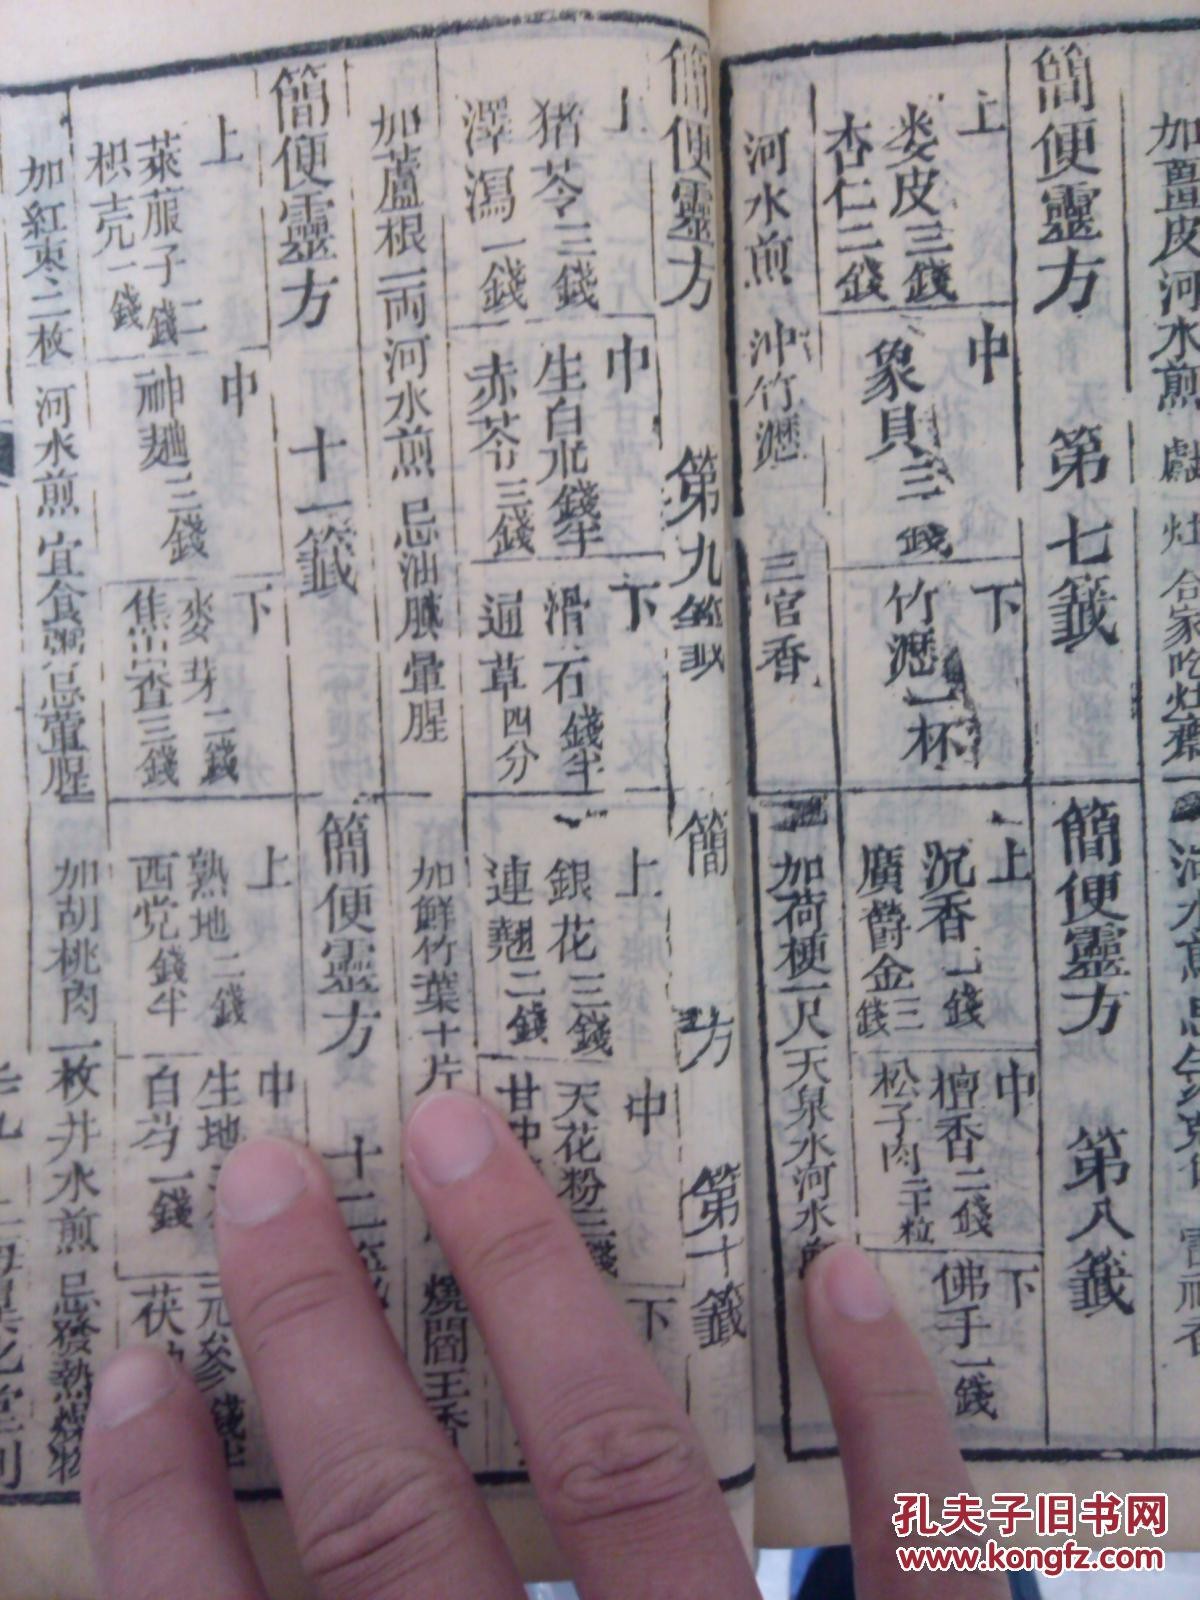 加薑皮河水煎
合家吃灶齋
簡便靈方 第七籤
上
娄皮三錢
杏仁二錢
中
象貝三錢
下
竹瀝一杯
河水煎 沖竹瀝 三官香
簡便靈方 第八籤
上
沉香一錢
廣欝金三錢
中
檀香二錢
松子肉二十粒
下
佛手一錢
加荷梗一尺天泉水河水
簡便靈方 第九籤
上
猪苓三錢
澤瀉一錢
中
生白朮錢半
赤苓三錢
下
滑石錢半
通草四分
加蘆根一兩河水煎 忌油膩暈腥
簡 方 第十籤
上
銀花三錢
連翹二錢
中
天花粉三錢
甘
下
加鮮竹葉十片
燒閻王香
簡便靈方 十一籤
上
萊菔子二錢
枳壳一錢
中
神麯三錢
下
麥芽二錢
焦查三錢
加紅枣二枚 河水煎 宜食粥忌葷腥
簡便靈方 十二籤
上
熟地二錢
西党錢半
中
生地
白芍一錢
元參錢半
茯
加胡桃肉一枚井水煎 忌發熱燥物
孔夫子旧书网
www.kongfz.com